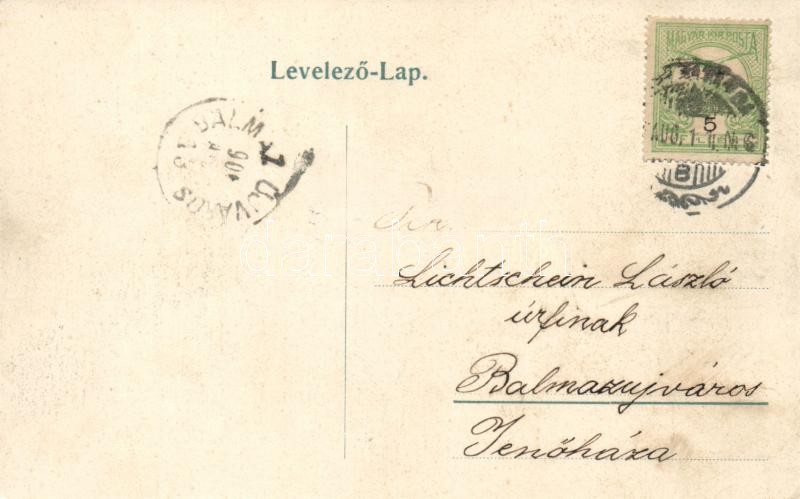 Levelező-Lap.
MAGYAR KIR. POSTA
5
AUG. 1
B
BALM
ÚJVÁROS
906
Lichtschein László
úrfinak
Balmazujváros
Jenőháza